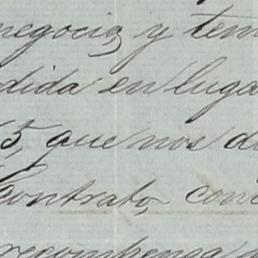 negocio, y tem
dida en luga
5, que nos d
Contrato, con
recompensa